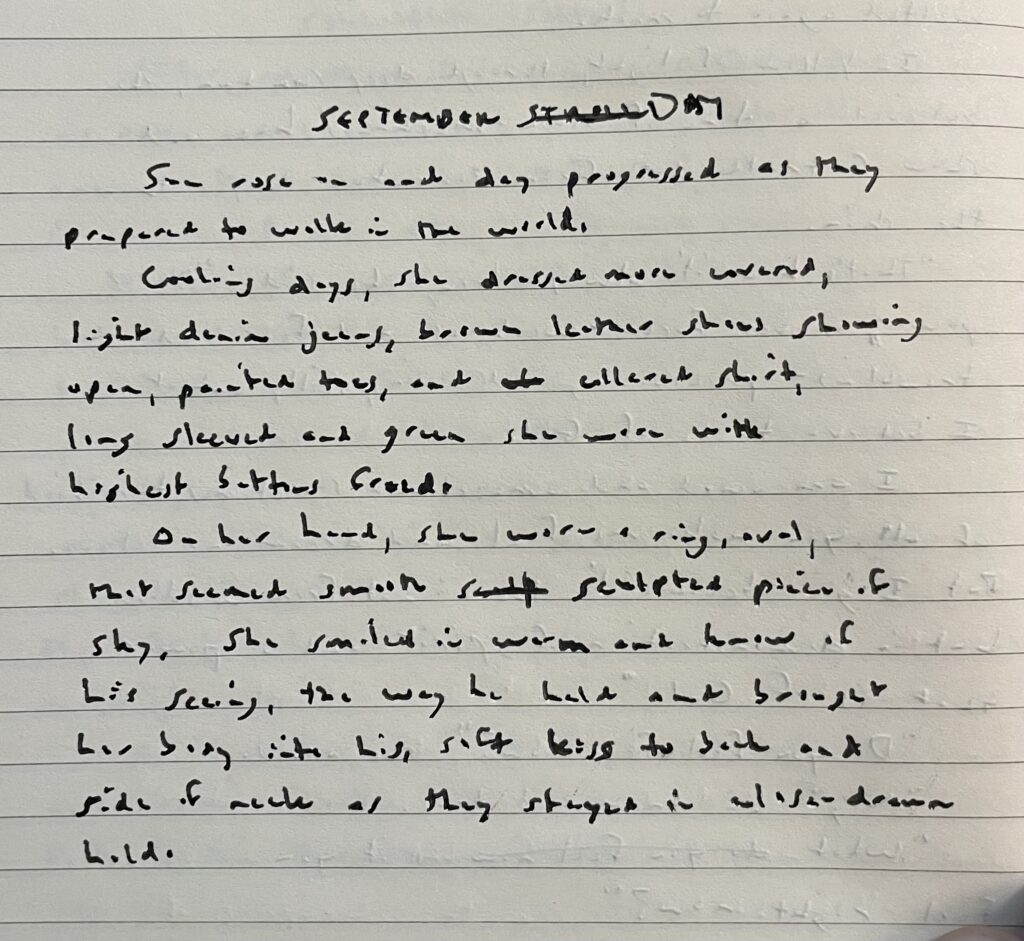 SEPTEMBER STROLL DAY
Sun rose on and day progressed as they
prepared to walk in the world.
Cooling days, she dressed more covered,
light denim jeans, brown leather shoes showing
open, painted toes, and collared shirt,
long sleeved and green she wore with
highest buttons freed.
On her hand, she wore a ring, oval,
that seemed smooth sculp sculpted piece of
sky. She smiled in warm and know of
his seeing, the way he held and brought
her body into his, soft kiss to back and
side of neck as they stayed in closer-drawn
hold.